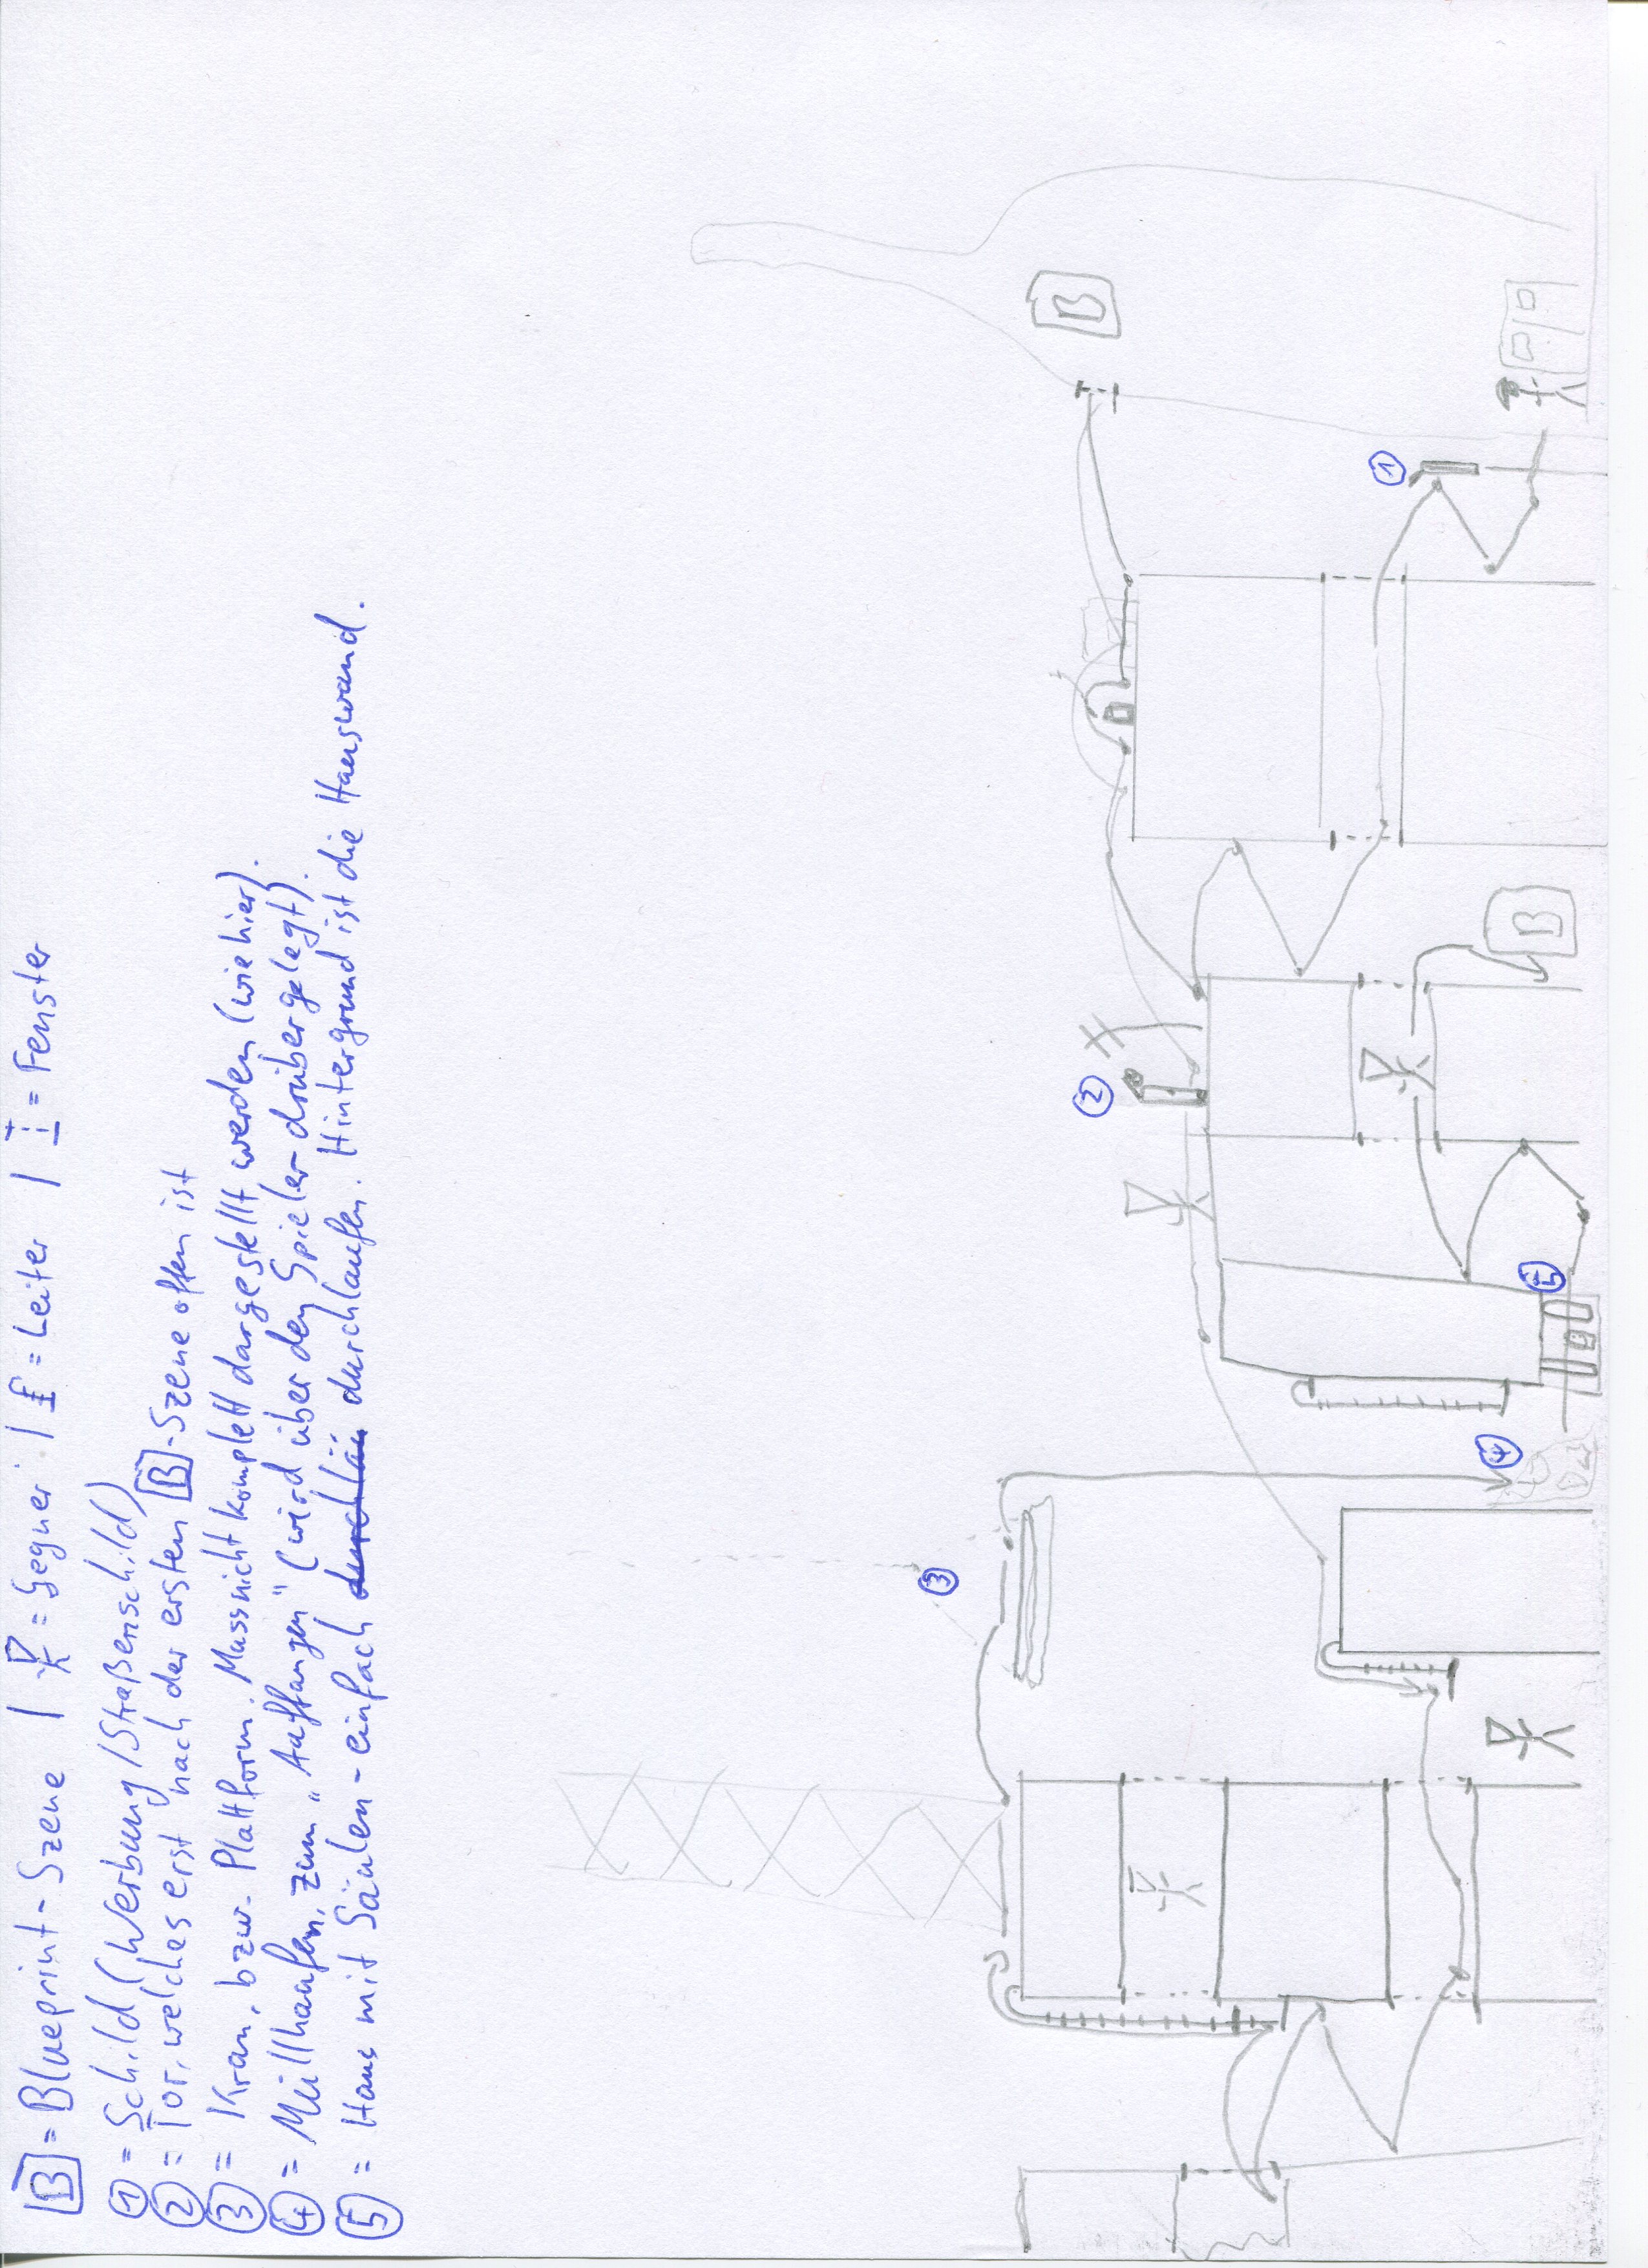 B = Blueprint-Szene | = Gegner | = Leiter | = Fenster
1 = Schild (Werbung/Straßenschild)
2 = Tor, welches erst nach der ersten B-Szene offen ist
3 = Kran, bzw. Plattform. Muss nicht komplett dargestellt werden (wie hier).
4 = Müllhaufen, zum „Auffangen" (wird über den Spieler drübergelegt).
5 = Haus mit Säulen - einfach durchlaufen. Hintergrund ist die Hauswand.
3
2
B
1
4
5
B